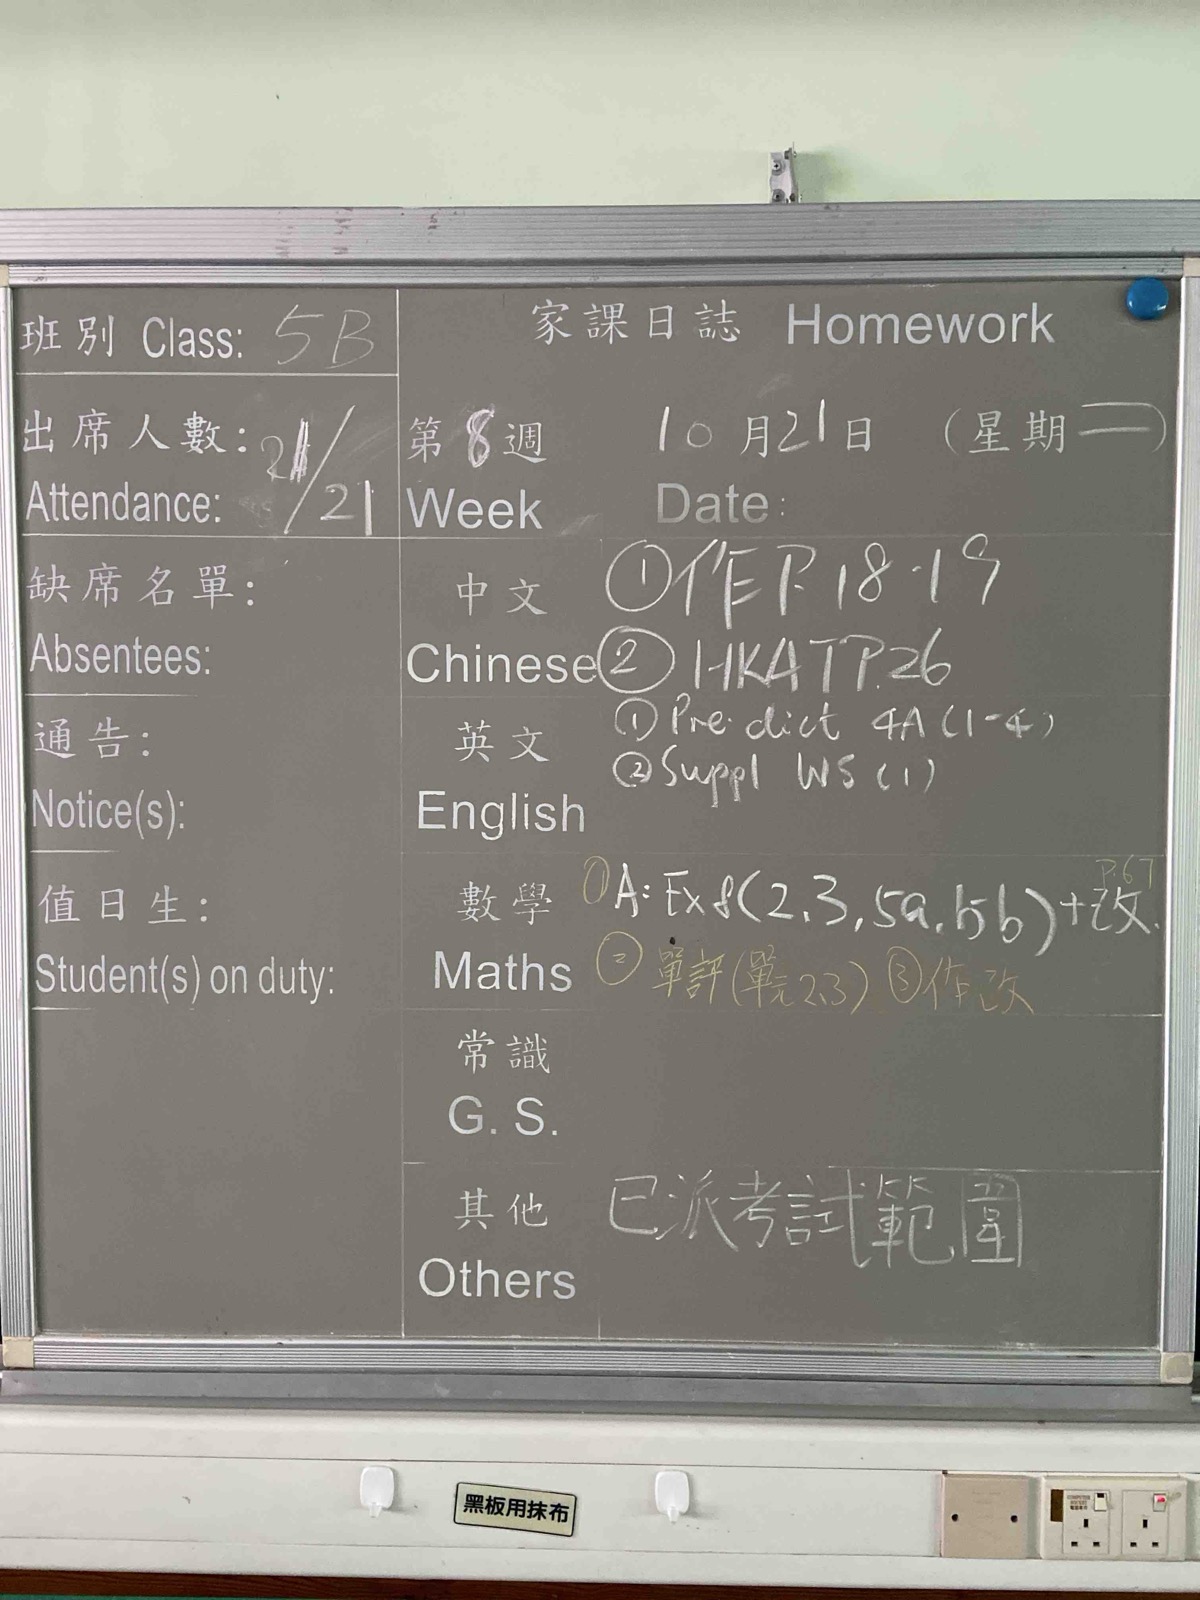 班別 Class: 5B
出席人數: 21/21
Attendance:
缺席名單:
Absentees:
通告:
Notice(s):
值日生:
Student(s) on duty:
家課日誌 Homework
第8週 10月21日 (星期二)
Week Date:
中文 ①作 P.18-19
Chinese ② HKAT P.26
英文 ① Pre-dict 4A (1-4)
② Suppl WS (1)
English
P.67
數學 ① A: Ex 8 (2, 3, 5a, 5b) + 改.
Maths ② 單評 (單元 2,3) ③ 作改
常識
G. S.
其他 已派考試範圍
Others
黑板用抹布